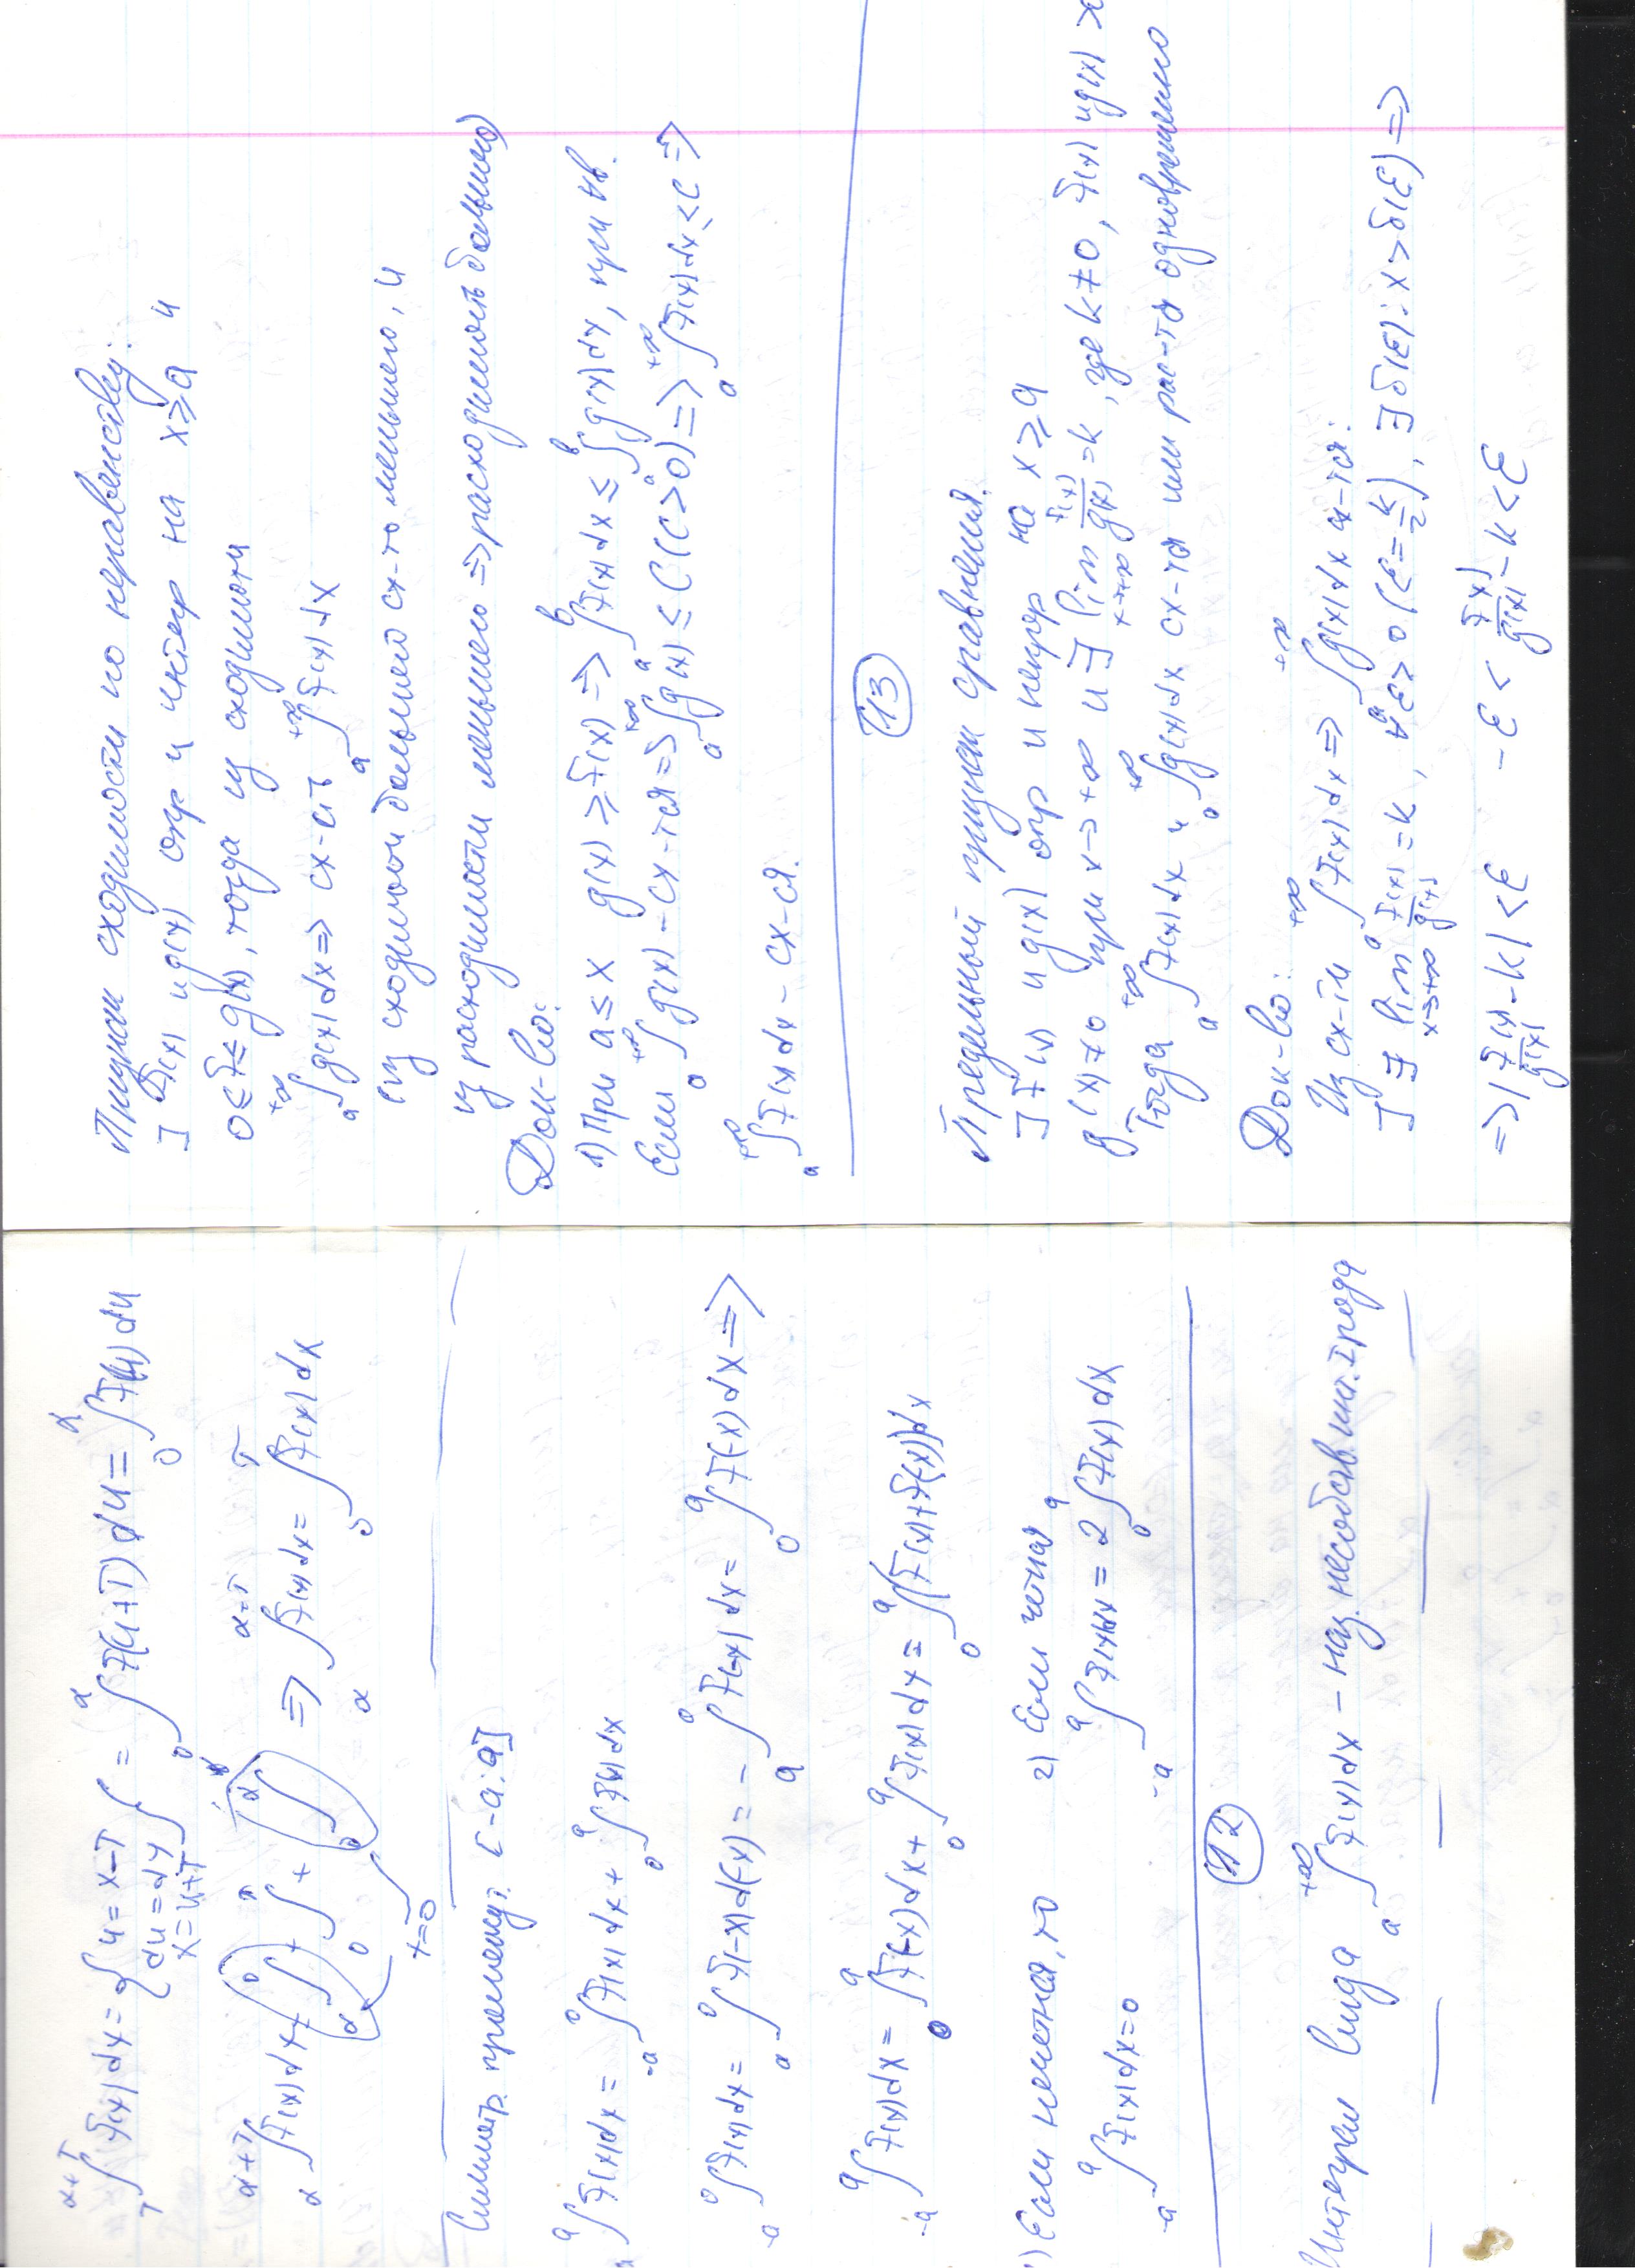 ∫_T^{α+T} f(x)dx = { u=x-T
du=dx
x=u+T
∫ = ∫_0^α f(u+T)du = ∫_0^α f(u)du
∫_α^{α+T} f(x)dx = ∫_α^0 + ∫_0^T + ∫_0^α ⇒ ∫_α^{α+T} f(x)dx = ∫_0^T f(x)dx
Симметр. промежут. [-a;a]
∫_{-a}^a f(x)dx = ∫_{-a}^0 f(x)dx + ∫_0^a f(x)dx
∫_{-a}^0 f(x)dx = ∫_a^0 f(-x)d(-x) = -∫_a^0 f(-x)dx = ∫_0^a f(-x)dx ⇒
∫_{-a}^a f(x)dx = ∫_0^a f(-x)dx + ∫_0^a f(x)dx = ∫_0^a (f(x)+f(-x))dx
1) Если нечетная, то 2) Если четная
∫_{-a}^a f(x)dx=0 ∫_{-a}^a f(x)dx = 2∫_0^a f(x)dx
12
Интеграл вида ∫_a^{+∞} f(x)dx - наз. несобств инт. I рода
Признак сходимости по неравенству:
] f(x) и g(x) опр и интегр на x≥a и
0≤f≤g(x), тогда из сходимости
∫_a^{+∞} g(x)dx ⇒ сх-сть ∫_a^{+∞} f(x)dx
(из сходимости большего сх-то меньшего, и
из расходимости меньшего ⇒ расходимость большего)
Док-во:
1) При a≤x g(x)≥f(x) ⇒ ∫_a^b f(x)dx ≤ ∫_a^b g(x)dx, при ∀b.
Если ∫_a^{+∞} g(x) - сх-тся ⇒ ∫_a^{+∞} g(x) ≤ C (C>0) ⇒ ∫_a^{+∞} f(x)dx ≤ C ⇒
∫_a^{+∞} f(x)dx - сх-ся.
13
Предельный признак сравнения.
] f(x) и g(x) опр и непрер на x≥a
g(x)≠0 при x→+∞ и ∃ lim_{x→+∞} f(x)/g(x) = k, где k≠0, f(x) и g(x) >
Тогда ∫_a^{+∞} f(x)dx и ∫_a^{+∞} g(x)dx сх-тся или рас-тся одновременно
Док-во:
Из сх-ти ∫_a^{+∞} f(x)dx ⇒ ∫_a^{+∞} g(x)dx сх-тся:
] ∃ lim_{x→+∞} f(x)/g(x) = k, ∀ε>0 (ε=k/2), ∃ δ(ε): x>δ(ε) ⇒
⇒ |f(x)/g(x) - k| < ε -ε < f(x)/g(x) - k < ε